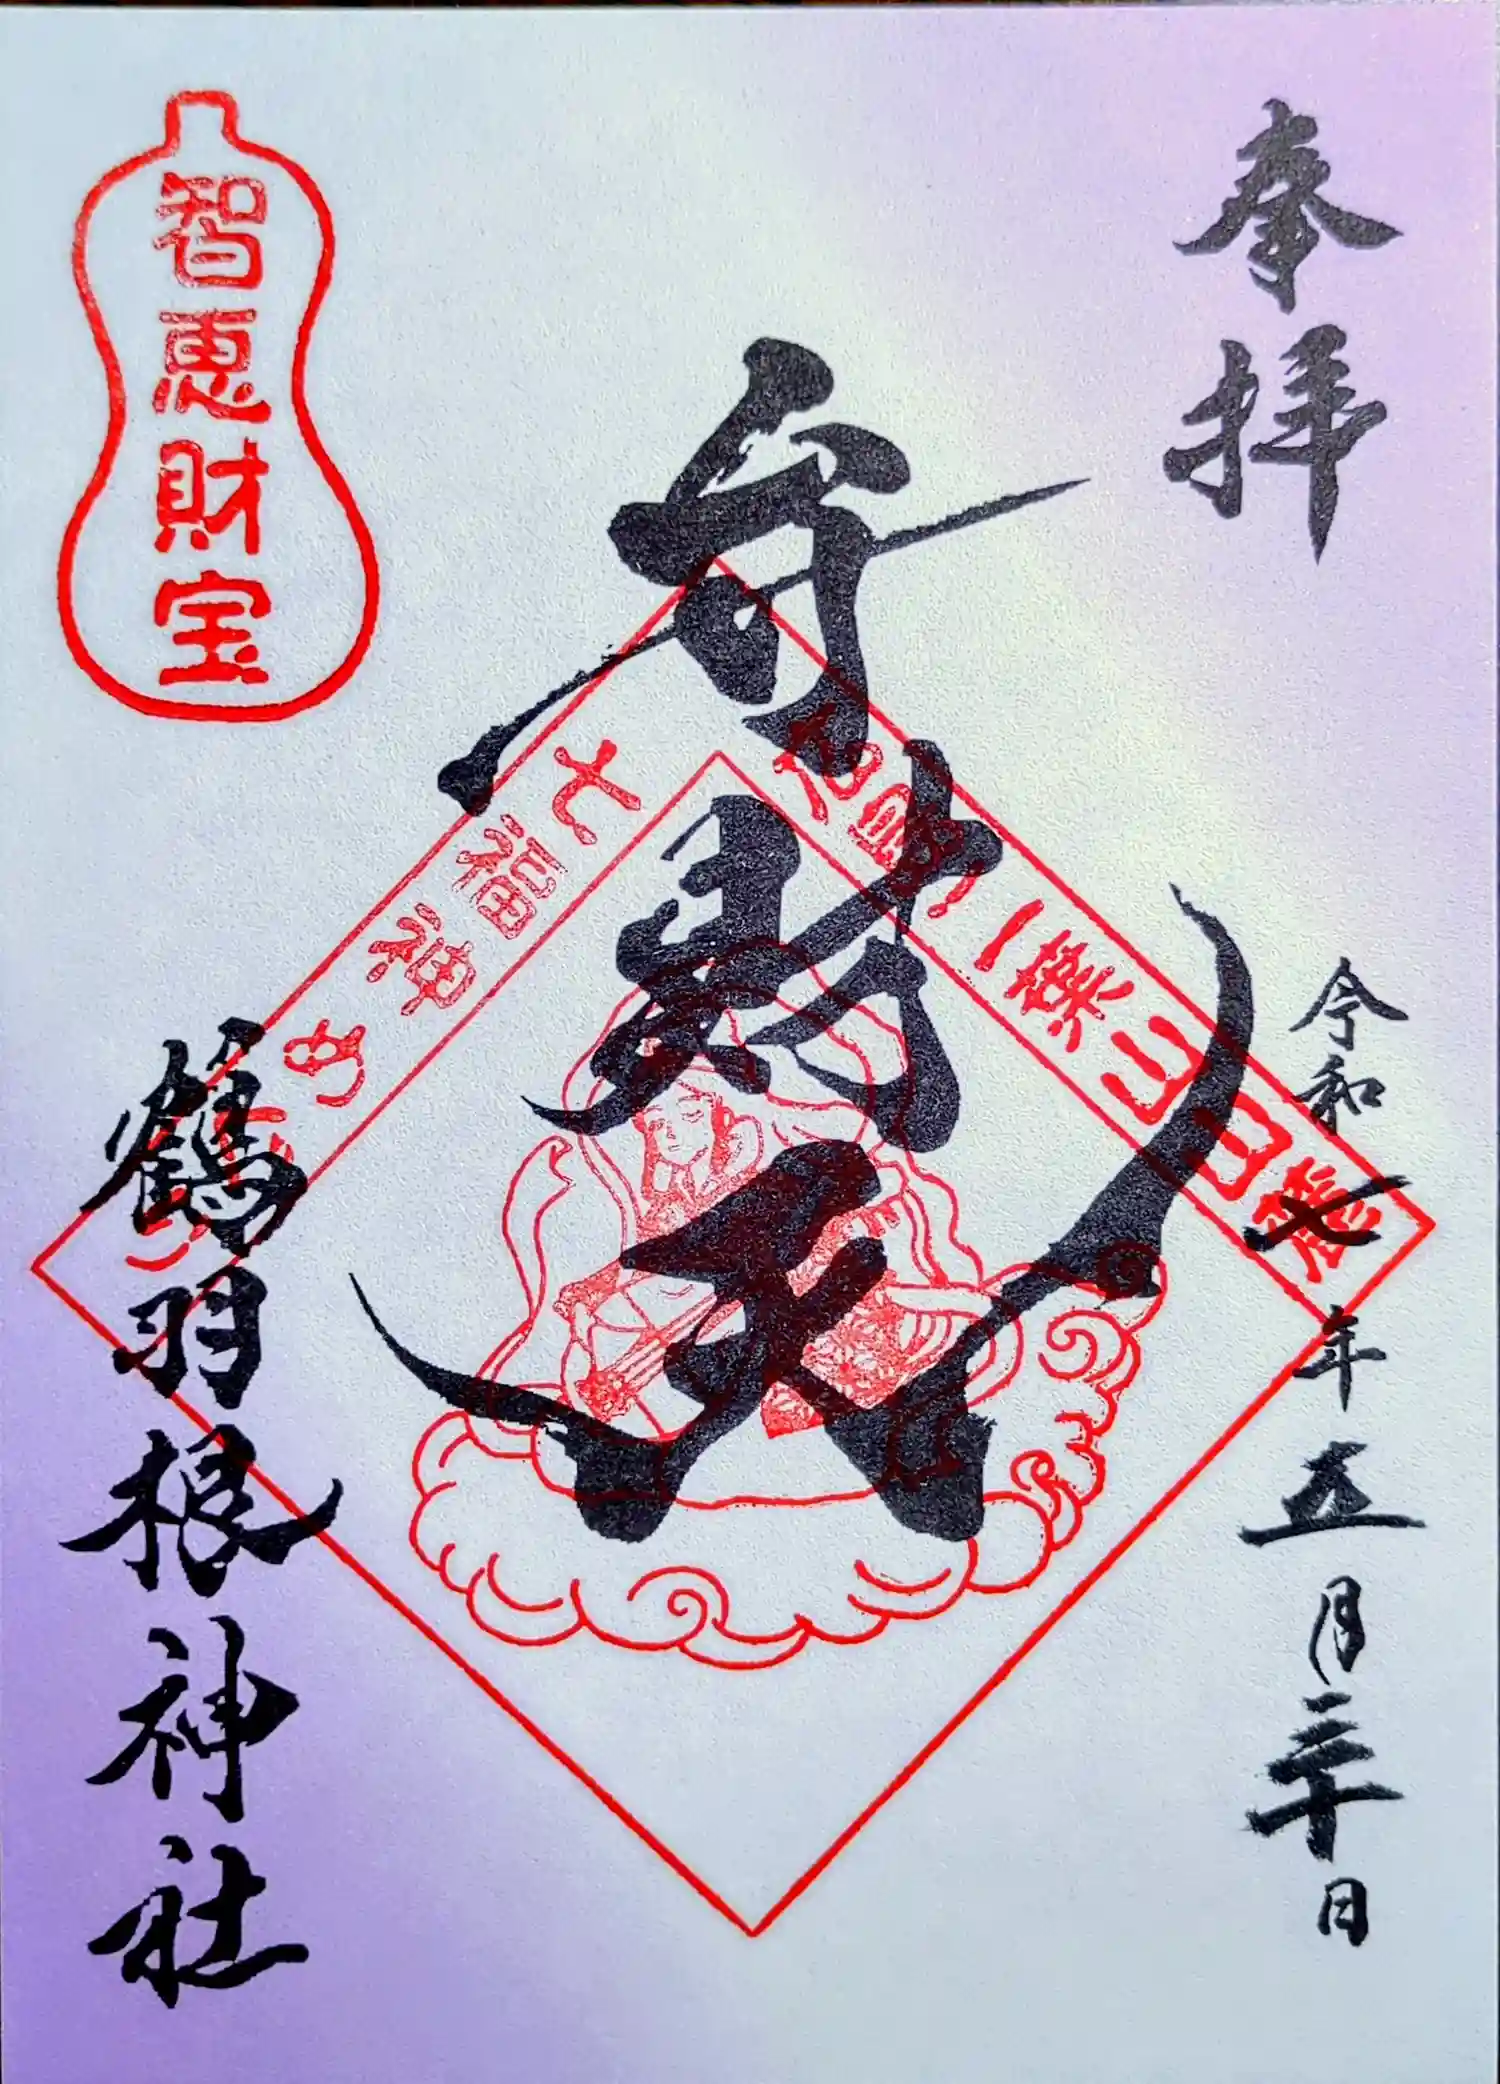 奉拝
令和七年五月三十日
弁財天
七福神
智恵財宝
鶴羽根神社